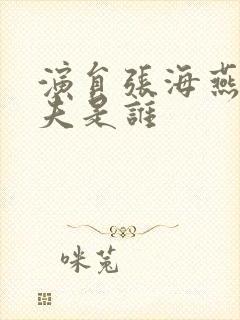 演員張海燕
夫是誰
咪兔